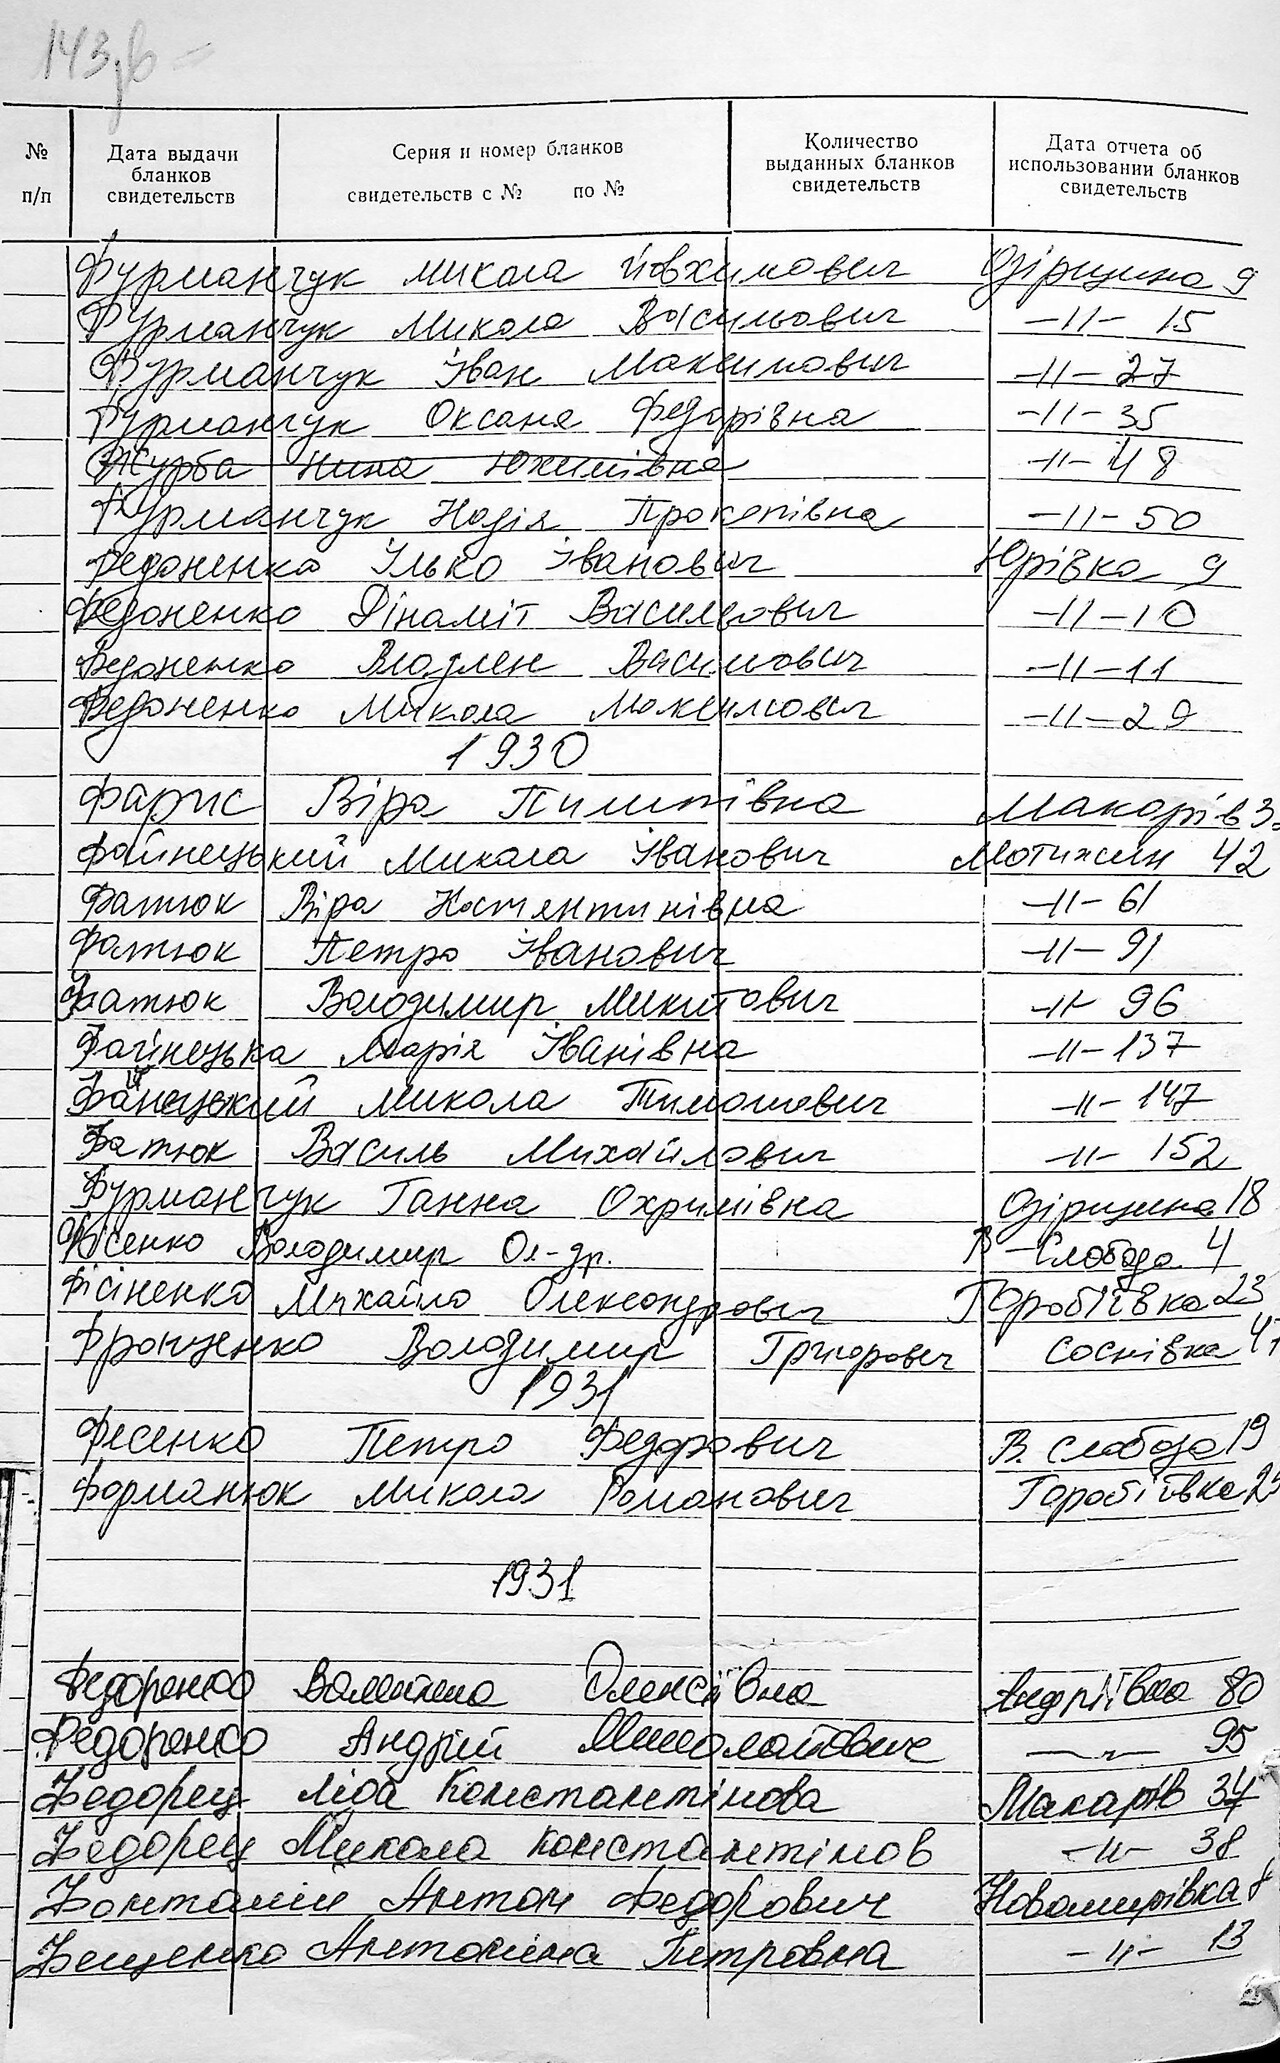 143
№ п/п
Дата выдачи бланков свидетельств
Серия и номер бланков свидетельств с № по №
Количество выданных бланков свидетельств
Дата отчета об использовании бланков свидетельств
Фурманчук Микола Йовхимович Фірщина 9
Фурманчук Микола Васильович -11- 15
Фурманчук Іван Максимович -11- 27
Фурманчук Оксана Федорівна -11- 35
Журба Нина Юхимівна -11- 48
Фурманчук Надія Прокопівна -11- 50
Федоненко Ілько Іванович Юрівка 9
Федоненко Дінаміт Васильович -11- 10
Федоненко Владлен Васильович -11- 11
Федоненко Микола Максимович -11- 29
1930
Фарис Віра Пилипівна Макарів
Файнецький Микола Іванович Мотижин 42
Фатюк Віра Костянтинівна -11- 61
Фатюк Петро Іванович -11- 91
Фатюк Володимир Микитович -11- 96
Файнецька Марія Іванівна -11- 137
Файнецький Микола Тимошович -11- 147
Фатюк Василь Михайлович -11- 152
Фурманчук Ганна Охримівна 18
Фісенко Володимир Ол-др. В-Слобода 4
Фісіненко Михайло Олександрович Горобіївка 23
Фронценко Володимир Григорович Соснівка
1931
Фесенко Петро Федорович В. Слобода 19
Форманюк Микола Романович Горобіївка
1931
Федоренко Валентина Олексіївна Андріївка 80
Федоренко Андрій Миколайович -"- 95
Федорец Ліда Константінова Макарів 34
Федорец Микола Константінов -11- 38
Фонталін Антон Федорович Новомирівка 8
Фещенко Антоніна Петровна -11- 13